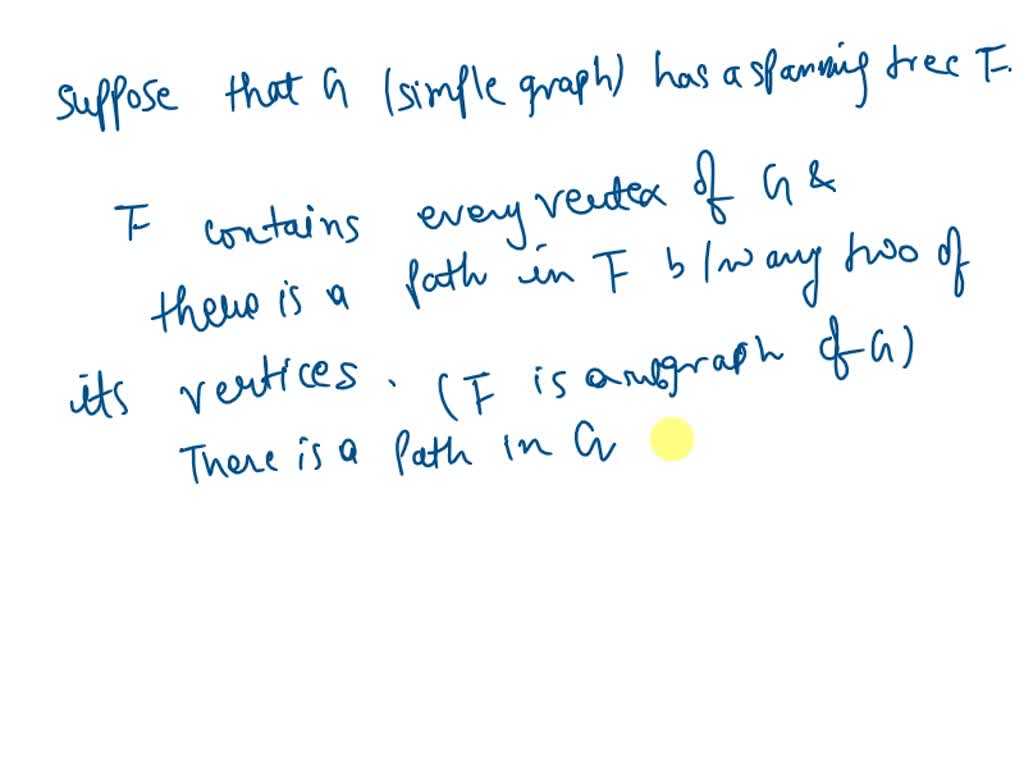 suppose that G (simple graph) has a spanning tree T.
T contains every vertex of G &
there is a path in T b/w any two of
its vertices. (T is a subgraph of G)
There is a Path in G